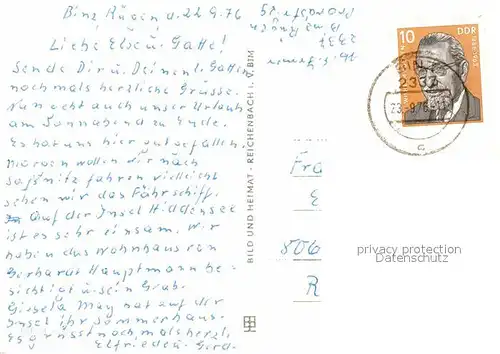 Binz Rügen, d. 22.9.76
Liebe Else u. Gatte!
Sende Dir u. Deinen l. Gatten
nochmals herzliche Grüsse.
Nun geht auch unser Urlaub
am Sonnabend zu Ende.
Es hat uns hier gut gefallen.
Morgen wollen wir nach
Saßnitz fahren vielleicht
sehen wir das Fährschiff.
Auf der Insel Hiddensee
ist es sehr einsam. Wir
haben das Wohnhaus von
Gerhardt Hauptmann be-
sichtigt u. sein Grab.
Gisela May hat auf der
Insel ihr Sommerhaus.
Es grüsst nochmals herzl.
Elfriede u. Gerd.
BILD UND HEIMAT · REICHENBACH i. V. BIM
2337
Binz Rügen
10
DDR
Fra
E
806
R
privacy protection
Datenschutz